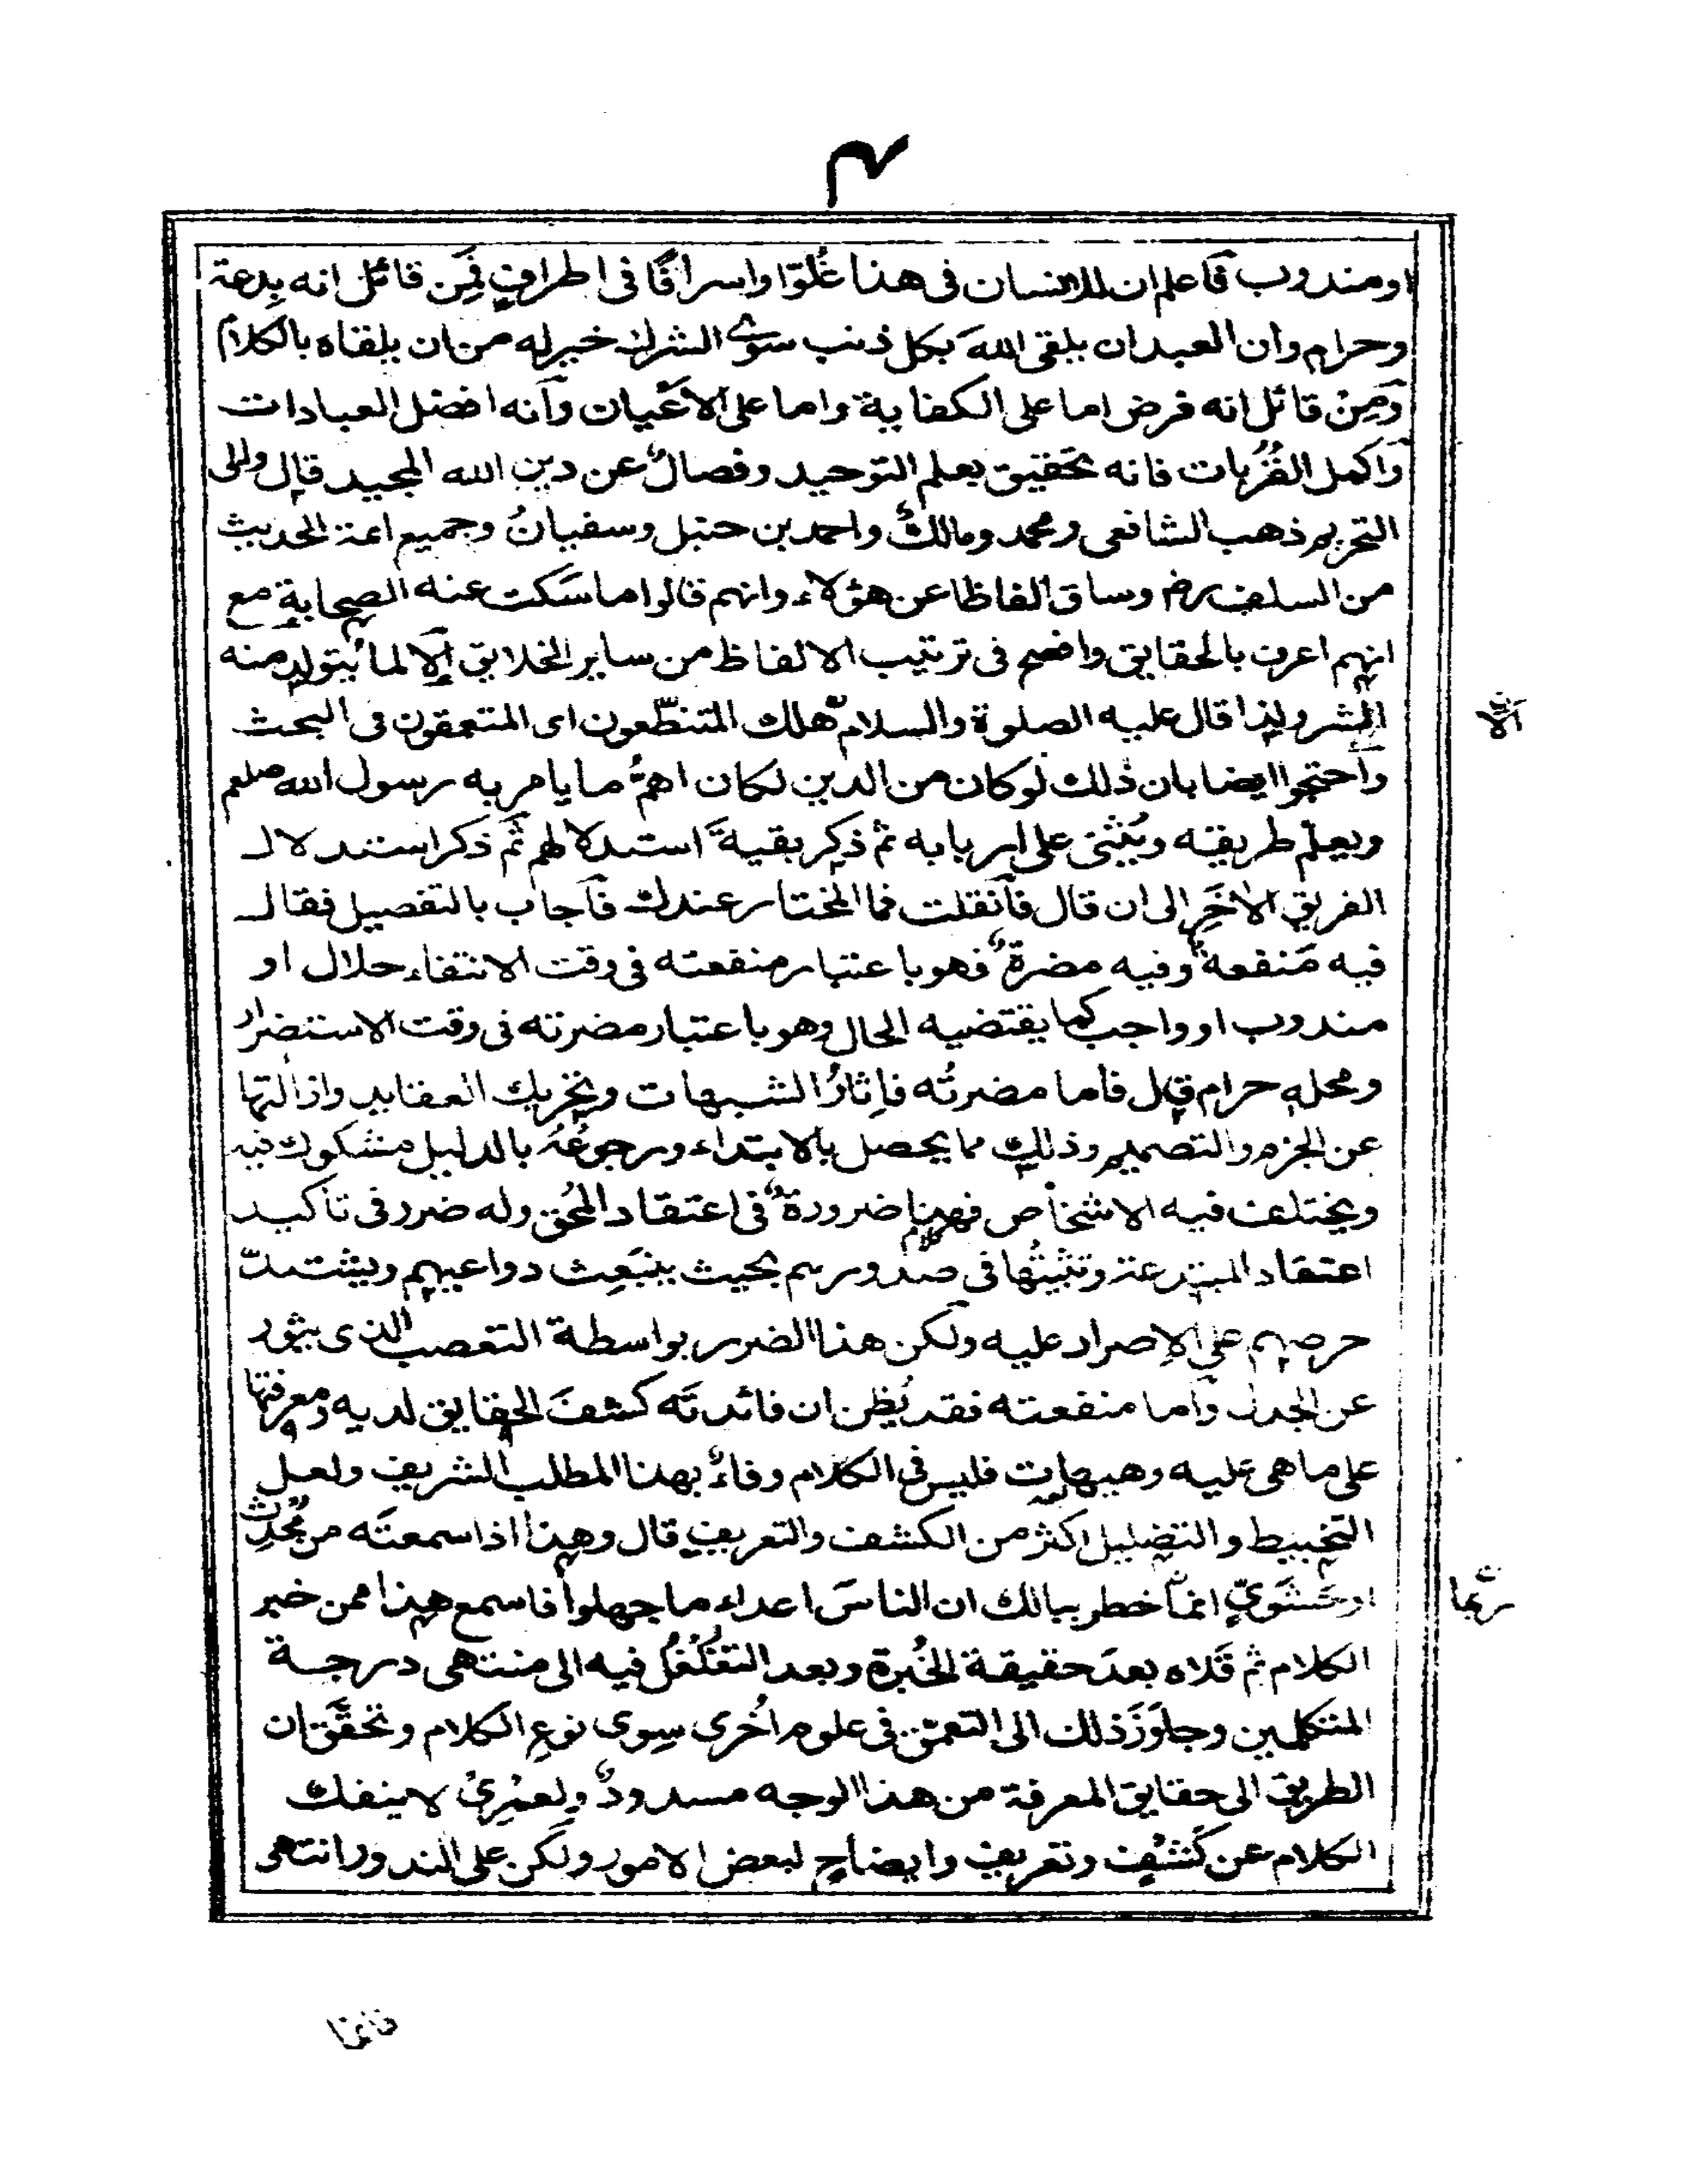 ٣
او مندوب فاعلم ان للانسان فى هذا غُلوّا واسرافًا فى اطرافٍ فمِن قائل انه بِدعة
وحرام وان العبد ان يلقى اللهَ بكل ذنب سوى الشرك خير له من ان يلقاه بالكلام
ومِنْ قائل انه فرض اما على الكفاية واما على الاعيان وانه افضل العبادات
واكمل القُرُبات فانه تحقيق بعلم التوحيد وفصالٌ عن دين الله المجيد قال والى
التحريم ذهب الشافعى ومحمد ومالكٌ واحمد بن حنبل وسفيانُ وجميع ائمة الحديث
من السلف رض وساق الفاظا عن هؤلاء وانهم قالوا ما سَكت عنه الصحابة مع
انهم اعرف بالحقايق وافصح فى ترتيب الالفاظ من ساير الخلايق اِلا لما يُتولد منه
الشر ولذا قال عليه الصلوة والسلام هلك المتنطّعون اى المتعمقون فى البحث
الا
واحتجوا ايضا بان ذلك لو كان من الدين لكان اهمُّ ما يامر به رسول الله صلعم
ويعلم طريقته ويُثنى على اربابه ثم ذكر بقيةَ استدلالهم ثم ذكر استدلال
الفريق الاخَرِ الى ان قال فان قلت فما المختار عندك فاجاب بالتفصيل فقال
فيه مَنفعةٌ وفيه مضرةٌ فهو باعتبار منفعته فى وقت الانتفاء حلال او
مندوب او واجب كما يقتضيه الحال وهو باعتبار مضرته فى وقت الاستضرار
ومحله حرام قال فاما مضرتُه فاِثارُ الشبهات وتحريك العقايد وازالتها
عن الجزم والتصميم وذلك مما يحصل بالابتداء ورجوعُهُ بالدليل مشكوك فيه
ويختلف فيه الاشخاص فهذا ضرورةٌ فى اعتقاد المُحق وله ضرر فى تاكيد
اعتقاد المبتدعة وتثبيتُها فى صدورهم بحيث ينبَعِث دواعيهم ويشتدّ
حرصهم على الاِصرار عليه ولكن هذا الضرر بواسطة التعصب الذى يثور
عن الجدل واما منفعته فقد يُظن ان فائدتَه كشفَ الحقايق لديه ومعرفتها
على ما هى عليه وهيهات فليس فى الكلام وفاءٌ بهذا المطلب الشريف ولعل
التخبيط والتضليل اكثر من الكشف والتعريف قال وهذا اذا سمعتَه من مُحدِثٍ
او حَشَوِيٍّ انما خطر ببالك ان الناسَ اعداء ما جهلوا فاسمع هذا ممن خبر
ربّما
الكلام ثم قَلاه بعدَ حقيقة الخُبرة وبعد التغلغُل فيه الى منتهى درجة
المتكلمين وجاوَزَ ذلك الى التعمق فى علوم اُخرى سِوى نوع الكلام وتحقَّق ان
الطريق الى حقايق المعرفة من هذا الوجه مسدودٌ ولعمرىْ لا ينفك
الكلام عن كَشفٍ وتعريفٍ وايضاحٍ لبعض الامور ولكن على الندور انتهى